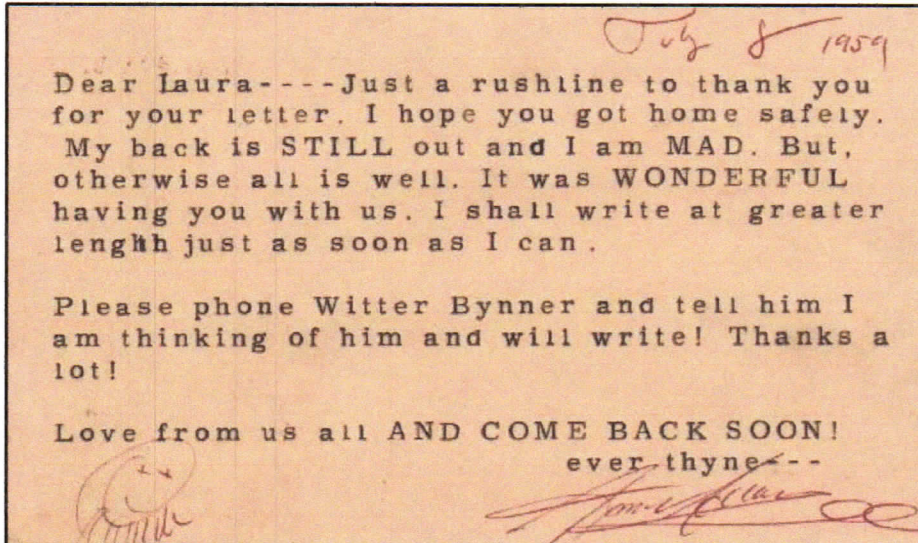 July 8 1959
Dear Laura----Just a rushline to thank you
for your letter. I hope you got home safely.
My back is STILL out and I am MAD. But,
otherwise all is well. It was WONDERFUL
having you with us. I shall write at greater
lenghh just as soon as I can.
Please phone Witter Bynner and tell him I
am thinking of him and will write! Thanks a
lot!
Love from us all AND COME BACK SOON!
ever thyne---